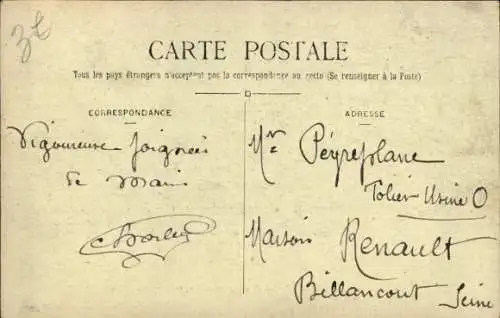 CARTE POSTALE
Tous les pays étrangers n'acceptent pas la correspondance au recto (Se renseigner à la Poste)
CORRESPONDANCE
ADRESSE
Vigoureuse poignées
de main
Mr Peyreplane
Tolier Usine O
Maison Renault
Billancourt
Seine